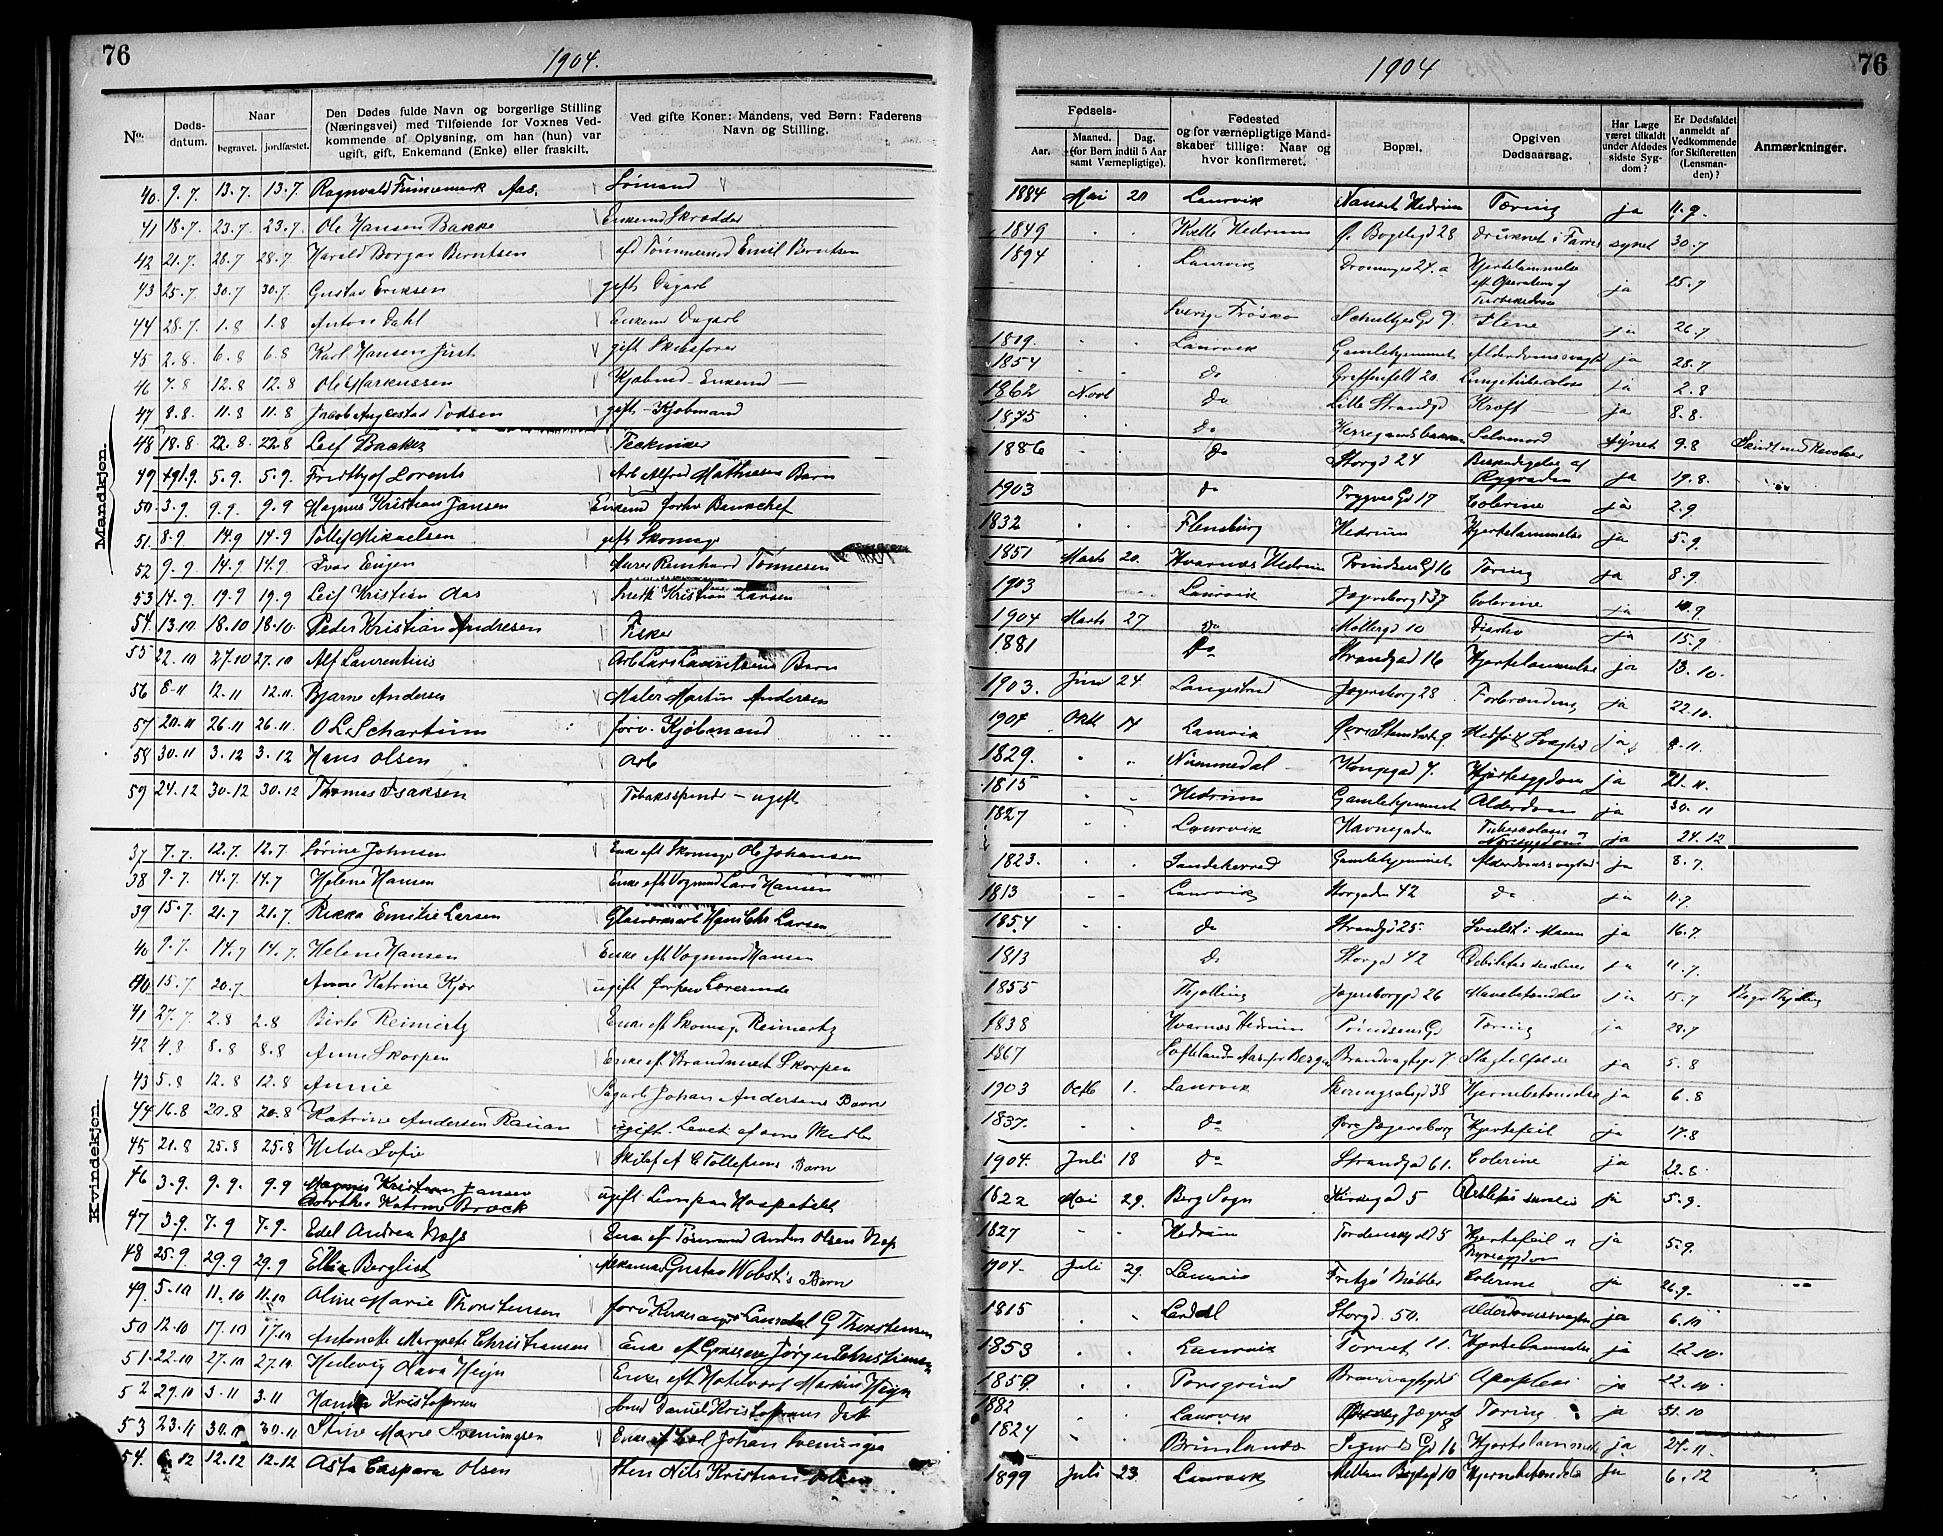 76
1904.
No.
Døds-datum.
Naar
begravet. jordfæstet.
Den Dødes fulde Navn og borgerlige Stilling
(Næringsvei) med Tilføiende for Voxnes Ved-
kommende af Oplysning, om han (hun) var
ugift, gift, Enkemand (Enke) eller fraskilt.
Ved gifte Koner: Mandens, ved Børn: Faderens
Navn og Stilling.
Mandkjøn.
40. 9.7. 13.7. 13.7. Ragnvald Aas. Sømand
41 18.7. 23.7. 23.7. Ole Hansen Bakke Enkemd Skrædder
42 21.7. 28.7 28.7. Harald Borgar Berntsen Emil Berntsen
43 25.7 30.7 30.7. Gustav Eriksen gift Dagarb
44 28.7. 1.8 1.8 Anton Dahl Enkem Dagarb
45 2.8. 6.8 6.8 Karl Hansen gift Skibsfører
46 7.8 12.8 12.8 Ole Markussen Kjøbmd - Enkemd -
47 8.8. 11.8 11.8 Jacob Todsen gift - Kjøbmand
48 18.8 22.8. 22.8 Leif Backer
49 5.9. 5.9. Fridthjof Lorents Arb Alfred Mathiesens Barn
50 3.9. 9.9. 9.9 Magnus Kristian Jansen Enkemd forhv Bankchef
51. 8.9 14.9 14.9 Mikaelsen gift Skomag
52 9.9. 14.9 14.9. Ivar Eugen Murer Reinhard Tønnesen
53 14.9. 19.9 19.9 Leif Kristian Aas Kristian Larsen
54. 13.10 18.10 18.10. Peder Kristian Andresen Fisker
55 22.10 27.10 27.10 Alf Laurentius Arb Lars Lauritsens Barn
56 8.11 12.11 12.11. Bjarne Andersen Maler Martin Andersen
57 20.11 26.11 26.11. O L Schartum forv. Kjøbmand
58 30.11 3.12 3.12 Hans Olsen Arb
59 24.12 30.12 30.12 Thomas Isaksen - ugift
Kvindekjøn.
37 7.7. 12.7. 12.7. Sørine Johnsen Enke eft Skomag Ole Johansen
38 9.7. 14.7. 14.7 Helene Hansen Enke eft Vognmd Lars Hansen
39 15.7. 21.7 21.7. Rikka Emilie Larsen Glasværksarb Hans Chr Larsen
40 9.7. 14.7 14.7. Helene Hansen Enke eft Vognmd Hansen
40 15.7 20.7. Anne Katrine Kjær ugift Lærerinde
41 27.7 2.8 2.8 Berte Reimertz Enke eft Skomag Reimertz
42 4.8 8.8 8.8 Anne Skorpen Enke eft Brandmest Skorpen
43 5.8 12.8 12.8 Annie Johan Andersens Barn
44 16.8 20.8 20.8 Katrine Andersen ugift. Levet af egne Midler
45 21.8 25.8 25.8 Hilda Sofie Tollefsens Barn
46 3.9. 9.9. 9.9 Magnus Kristian Jansen
Dorothea Katrine Brock ugift Hospitalet
47 3.9. 7.9 7.9. Edel Andrea Næss Enke eft Anders Olsen Næss
48 25.9. 29.9 29.9 Ella Berglist Gustav Wobst's Barn
49. 5.10 11.10 11.10 Oline Marie Thorstensen forv G Thorstensen
50 12.10 17.10 17.10 Antonette Margrete Christiansen Enke eft Jørgen Christiansen
51. 22.10 27.10 27.10. Hedevig Heijn Enke eft Markus Heijn
52 29.10 3.11 3.11 Hanna Kristoffersen Daniel Kristoffersens Datt
53 23.11 30.11 30.11 Stine Marie Sveningsen Enke eft Carl Johan Sveningsen
54. 6.12 12.12 12.12 Asta Caspara Olsen Nils Kristian Olsen
1904
76
Fødsels-
Aar.
Maaned. Dag.
(for Børn indtil 5 Aar
samt Værnepligtige).
Fødested
og for værnepligtige Mand-
skaber tillige: Naar og
hvor konfirmeret.
Bopæl.
Opgiven
Dødsaarsag.
Har Læge
været tilkaldt
under Afdødes
sidste Syg-
dom?
Er Dødsfaldet
anmeldt af
Vedkommende
for Skifteretten
(Lensman-
den)?
Anmærkninger.
1884 Mai 20 Laurvik Nanset Hedrum Tæring ja 11.9.
1849 Kvelle Hedrum Ø. Bøgelegd 28 druknet i Farris synet 30.7
1894 Laurvik Droningeg 24.a Hjertelammelse
eft Operation af ja 25.7
Sverige Schultzes Gd 9. ja 26.7
1819. Laurvik Gamlehjemmet Alderdomssvaghed ja 28.7
1854 do Greffenfelt 20. Lungetuberculose ja 2.8
1862 Novb do Lille Strandgd Kræft ja 8.8.
1875 do Herregaardsbakken Selvmord synet 9.8 Skudt med Revolver
1886 do Storgd 24 Beskadigelse af
Rygraden ja 19.8.
1903 do Trygves Gd 17 Colerine ja 2.9
1832 Flensburg Hedrum Hjertelammelse ja 5.9.
1851 Marts 20. Kvarnæs Hedrum Prindsens Gd 16 Tæring ja 8.9.
1903 Laurvik Jegersborg 137 Colerine ja
1904 Marts 27. do Møllergd 10 ja 15.9
1881 do Strandgd 16 Hjertelammelse ja 13.10.
1903. Juni 24. Langestrand Jegersborg 28 Forbrænding ja 22.10.
1904 Oktb 14 Laurvik Øvre 9. Medfødt Svaghed ja 8.11.
1829. Nummedal Kongegd 7. Hjertesygdom ja 21.11.
1815 Hedrum Gamlehjemmet Alderdom ja 30.11
1827 Laurvik Havnegaden Tuberculose
Nyresygdom ja 24.12
1823. Sandeherred Gamlehjemmet Alderdomssvaghed ja 8.7.
1813 Laurvik Storgaden 42 do ja 11.7
1854 do Strandgd 25. i Maven ja 16.7.
1813 do Storgd 42 Debilitas senilis ja 11.7.
1855 Thjølling Jegersborggd 26 ja 15.7 Thjølling
1838 Kvarnæs Hedrum Prindsens Gd Tæring ja 28.7
1867 Bergen Brandvagtsgd 7 Slagtilfælde ja 5.8
1903 Octb 1. Laurvik Skiringsalsgd 38 Hjernebetændelse ja 6.8
1837. do Øvre Jegersborg Hjertefeil ja 17.8
1904. Juli 18 do Strandgd 61. Colerine ja 22.8.
1822 Mai 29. Berg Sogn Kirkegd 5 Debilitas senilis ja 5.9.
1827 Hedrum Tordenskj d 5 Hjertefeil
Nyresygdom ja 5.9.
1904. Juli 29. Laurvik Fritzø Møller Colerine ja 26.9.
1815 Lardal Storgd. 50. Alderdomssvaghed ja 6.10
1853 Laurvik Torvet 11. Hjertelammelse ja 12.10.
1859. Porsgrund Brandvagtsgd 5 Apoplexi ja 22.10.
1882 Laurvik Jegersb 8 Tæring ja 31.10
1824 Brunlanes Sigurds Gd 16 Hjertelammelse ja 24.11.
1899 Juli 23. Laurvik Mellem Bøgtegd 10 Hjernebetændelse Ja 6.12